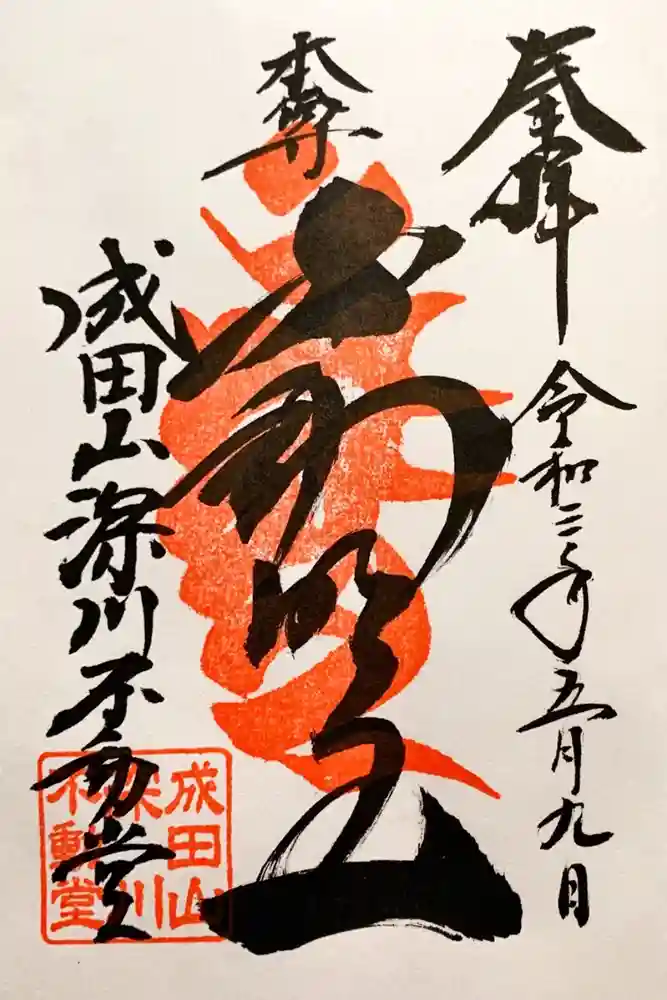 奉拝
令和三年五月九日
本尊
不動明王
成田山深川不動堂
成田山
深川
不動堂